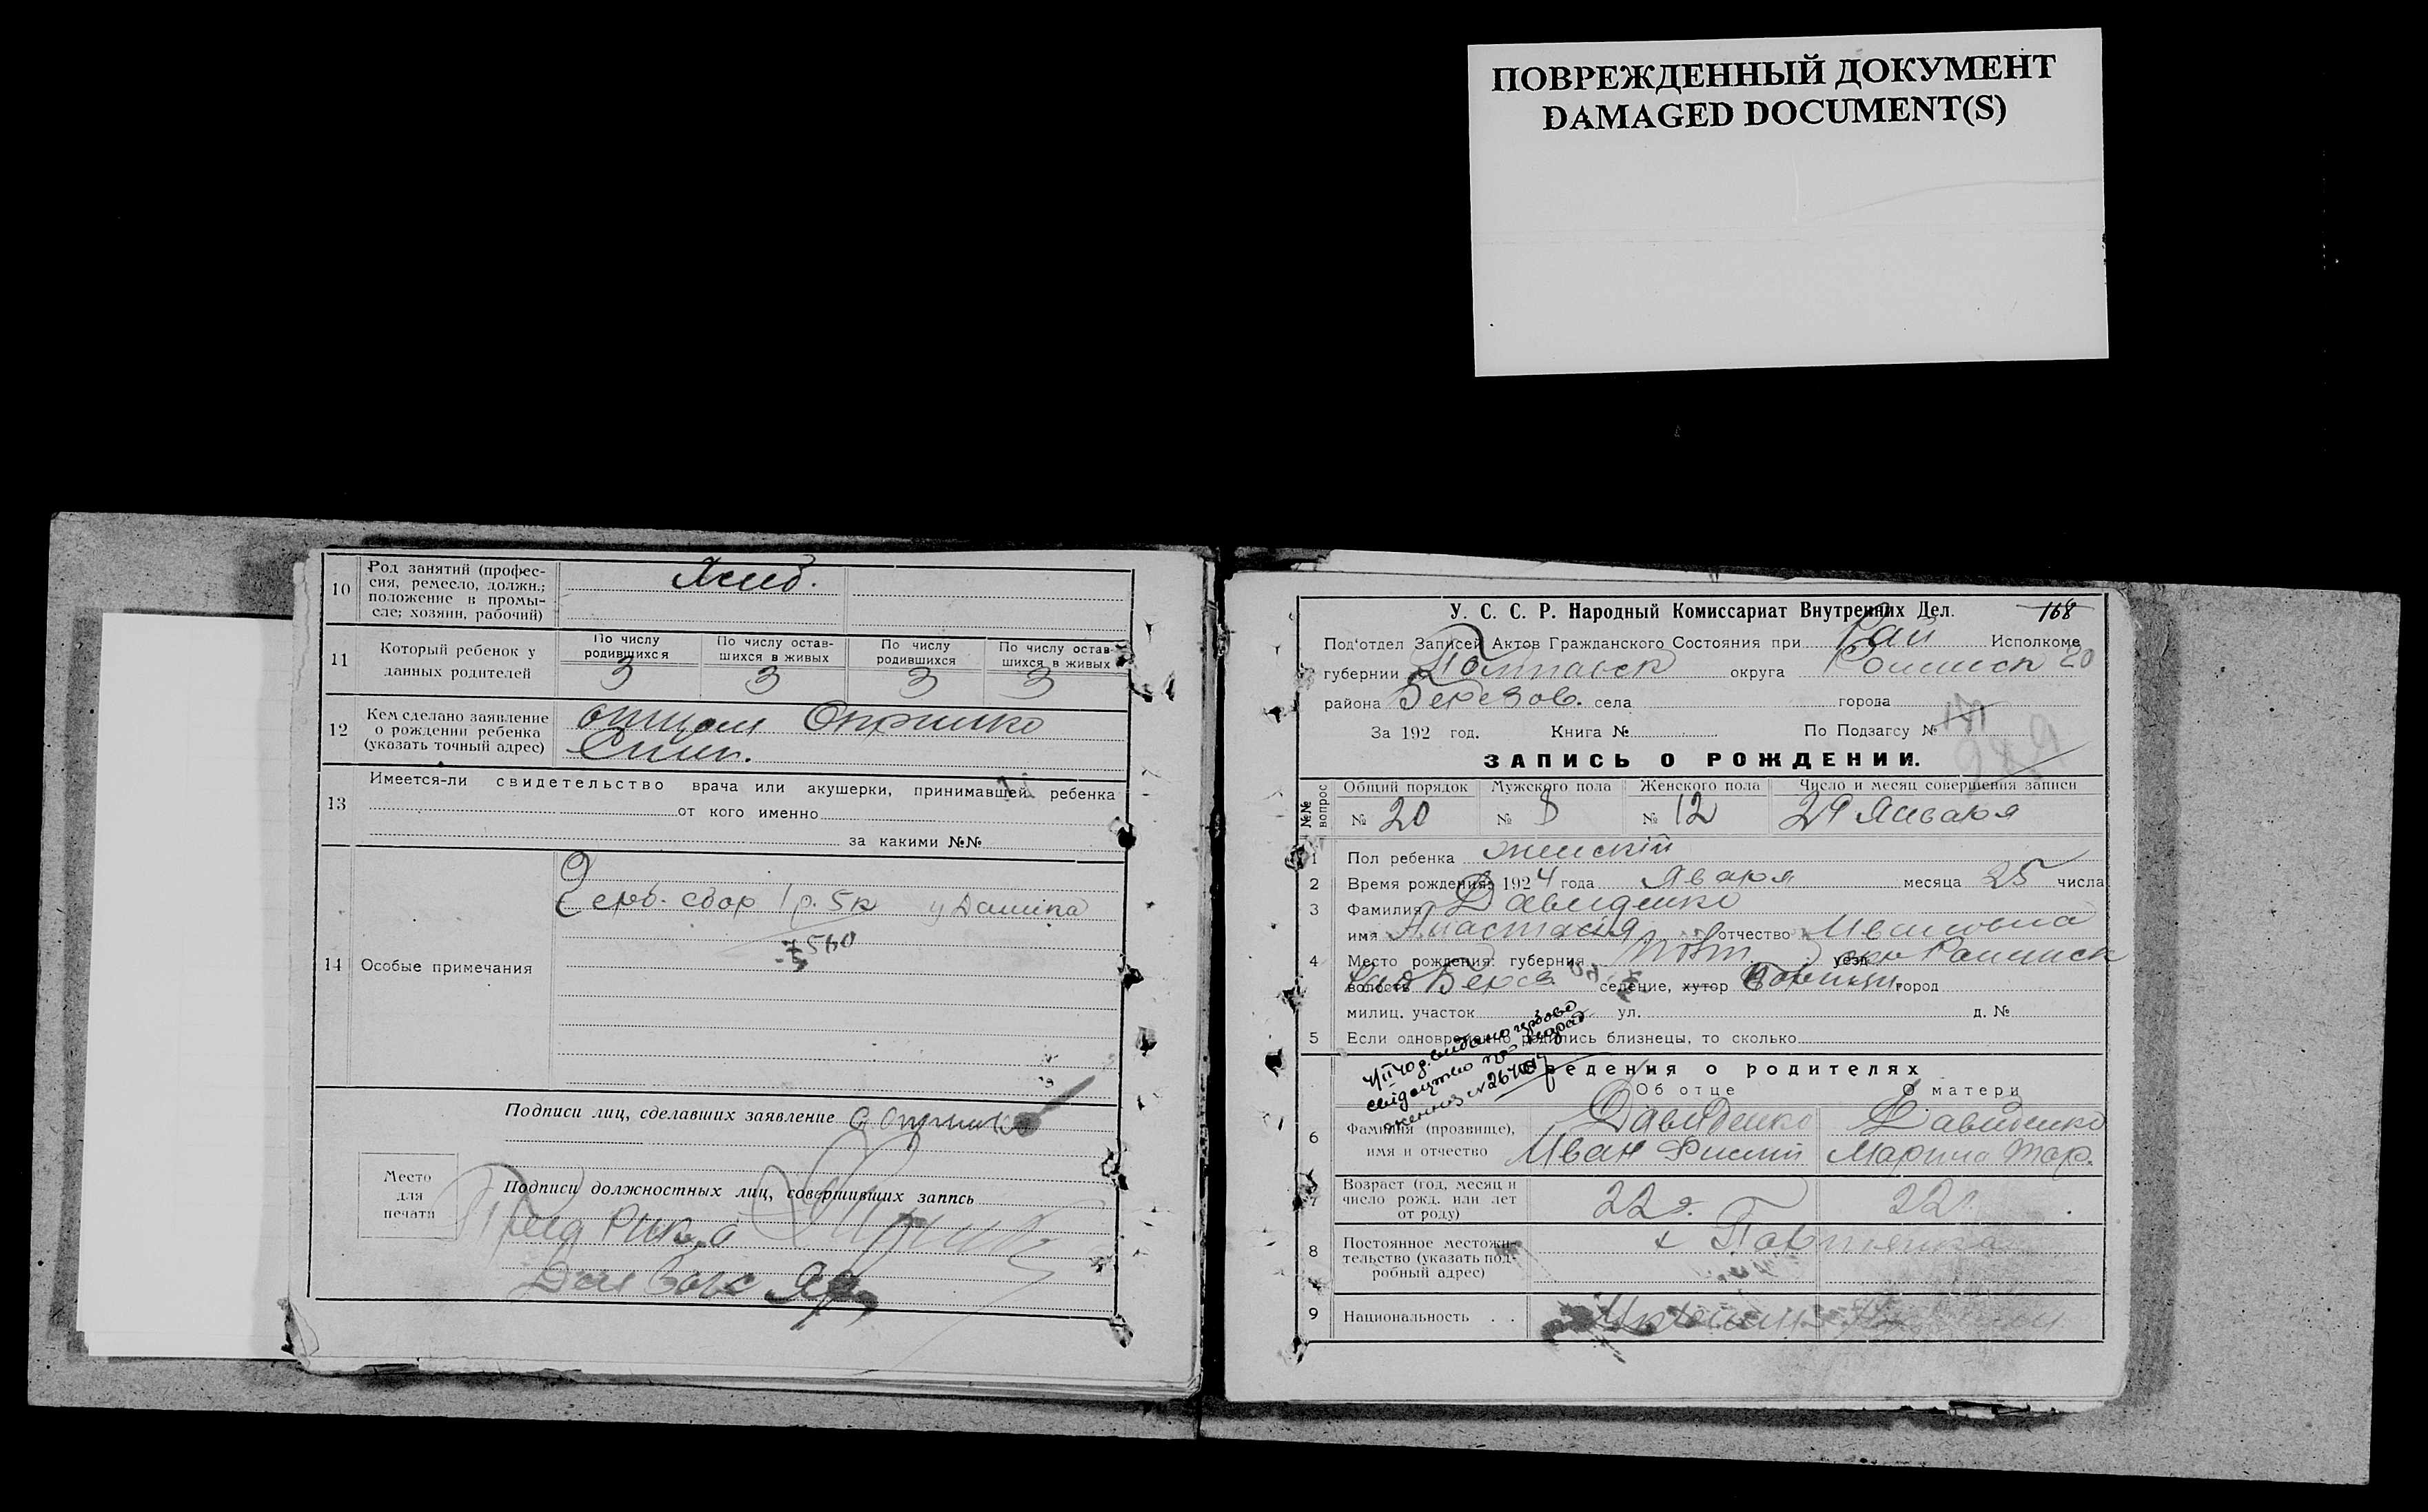 ПОВРЕЖДЕННЫЙ ДОКУМЕНТ
DAMAGED DOCUMENT(S)
10 Род занятий (профес-
сия, ремесло, должн.;
положение в промы-
сле; хозяин, рабочий)
Хлеб.
11 Который ребенок у
данных родителей
По числу родившихся По числу остав-шихся в живых По числу родившихся По числу остав-шихся в живых
3 3 3 3
12 Кем сделано заявление
о рождении ребенка
(указать точный адрес)
отцом Опришко
13 Имеется-ли свидетельство врача или акушерки, принимавшей ребенка
от кого именно
за какими №№
14 Особые примечания
Герб. сбор 1 р. 5к
7560
Подписи лиц, сделавших заявление С Опришко
Место
для
печати
Подписи должностных лиц, совершивших запись
Пред Рика
У. С. С. Р. Народный Комиссариат Внутренних Дел. 168
Под'отдел Записей Актов Гражданского Состояния при Рай Исполкоме
губернии Полтавск округа Роменск 20
района Березов. села города
За 192 год. Книга № По Подзагсу №
ЗАПИСЬ О РОЖДЕНИИ.
№№ вопрос Общий порядок Мужского пола Женского пола Число и месяц совершения записи
№ 20 № 8 № 12 29 Января
1 Пол ребенка женский
2 Время рождения: 1924 года Января месяца 25 числа
3 Фамилия Давиденко
имя Анастасия отчество Ивановна
4 Место рождения: губерния Полт уезд окр Роменск
волость Берез селение, хутор город
милиц. участок ул. д. №
5 Если одновременно родились близнецы, то сколько
Сведения о родителях
Об отце О матери
6 Фамилия (прозвище),
имя и отчество
Давиденко Давиденко
Иван Филип Марина
7 Возраст (год, месяц и
число рожд. или лет
от роду)
22 г. 22
8 Постоянное местожи-
тельство (указать под-
робный адрес)
9 Национальность . .